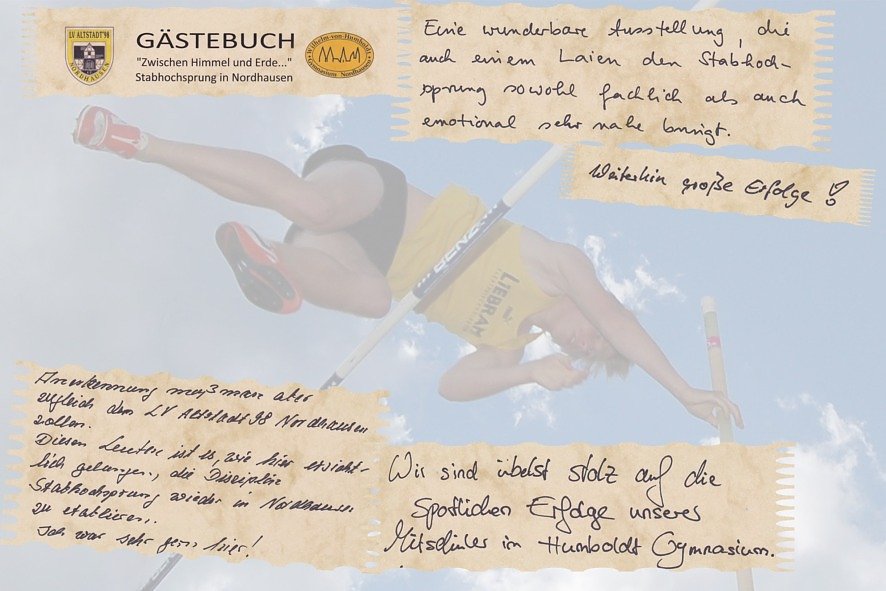 LV ALTSTADT'98
NORDHAUSEN
GÄSTEBUCH
"Zwischen Himmel und Erde..."
Stabhochsprung in Nordhausen
Wilhelm-von-Humboldt
Gymnasium Nordhausen
Eine wunderbare Ausstellung, die
auch einem Laien den Stabhoch-
sprung sowohl fachlich als auch
emotional sehr nahe bringt.
Weiterhin große Erfolge!
LIEBRAM
Anerkennung muß man aber
zugleich dem LV Altstadt 98 Nordhausen
zollen.
Diesen Leuten ist es, wie hier ersicht-
lich gelungen, die Disziplin
Stabhochsprung wieder in Nordhausen
zu etablieren.
Ich war sehr gern hier!
Wir sind übelst stolz auf die
Sportlichen Erfolge unseres
Mitschüler im Humboldt Gymnasium.